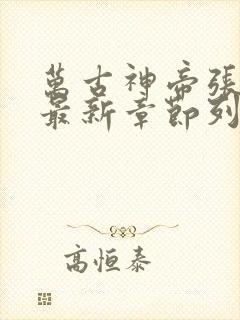 萬古神帝張
最新章節列
高恒泰